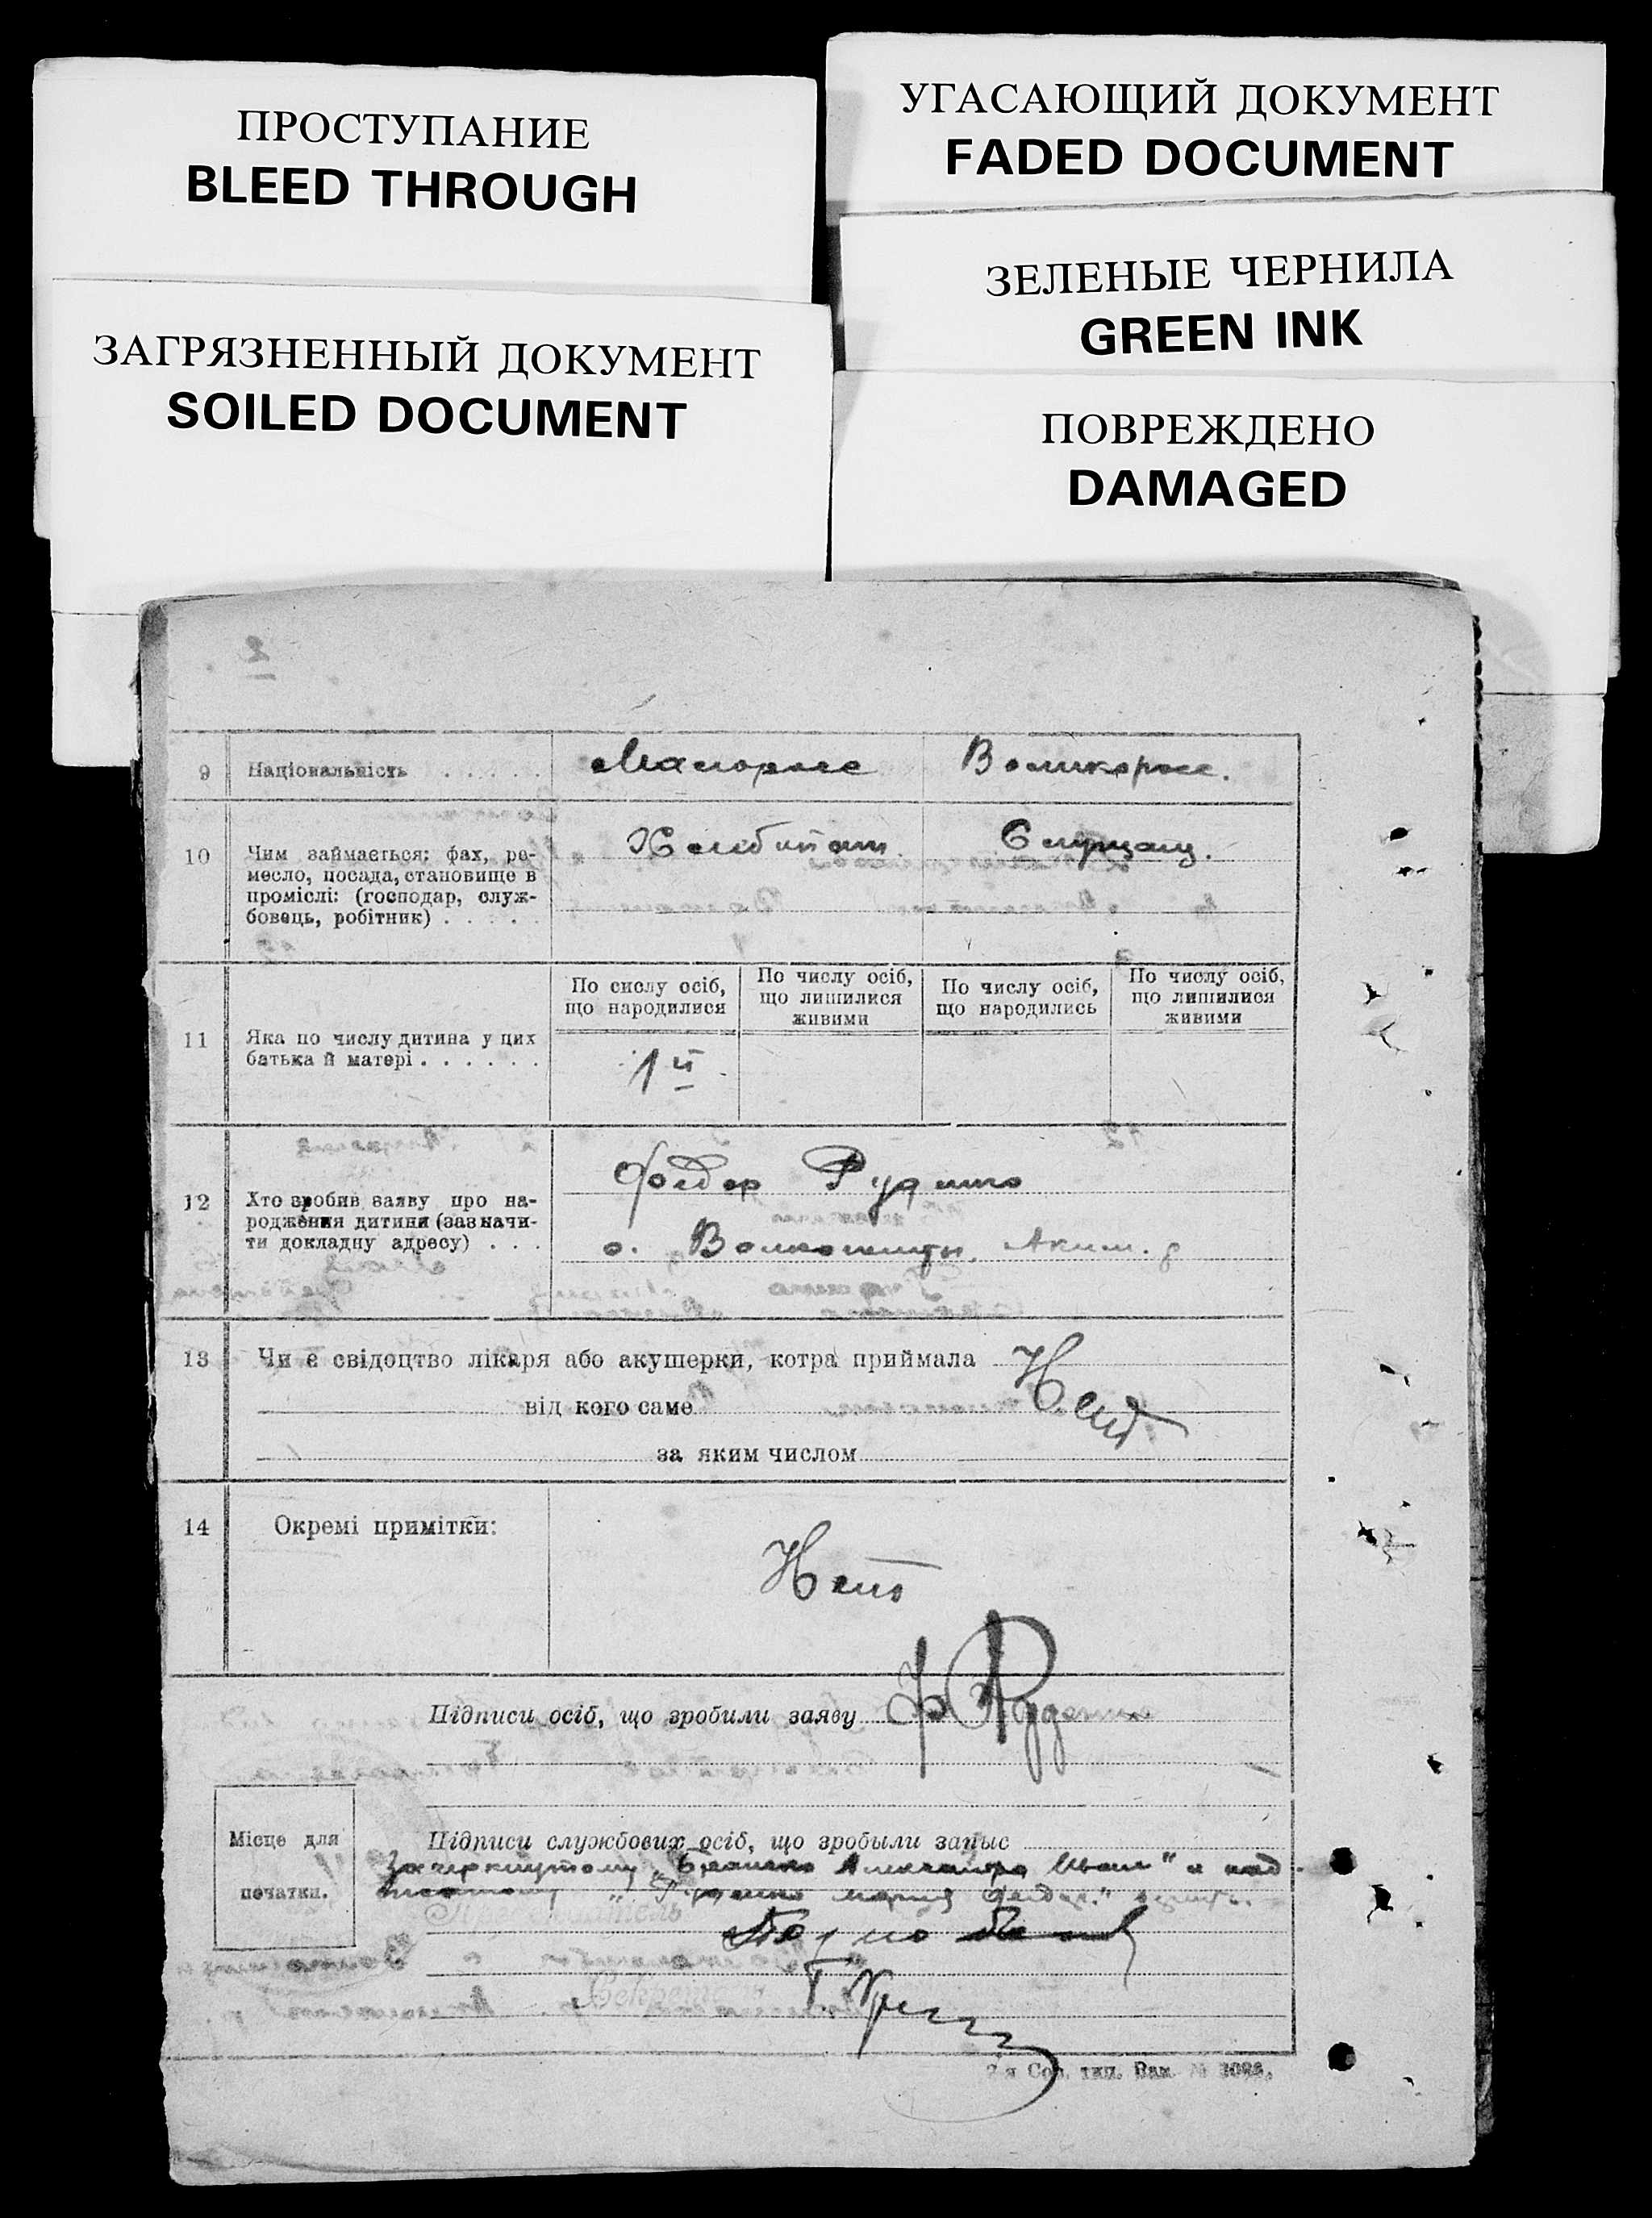 ПРОСТУПАНИЕ
BLEED THROUGH
УГАСАЮЩИЙ ДОКУМЕНТ
FADED DOCUMENT
ЗЕЛЕНЫЕ ЧЕРНИЛА
GREEN INK
ЗАГРЯЗНЕННЫЙ ДОКУМЕНТ
SOILED DOCUMENT
ПОВРЕЖДЕНО
DAMAGED
2
9 Національність . . . . . Малоросс Великоросс.
10 Чим займається: фах, ре-
месло, посада, становище в
проміслі: (господар, служ-
бовець, робітник) . . . . .
Хлебопаш. Служащ.
11 Яка по числу дитина у цих
батька й матері . . . . . .
По сислу осіб,
що народилися
По числу осіб,
що лишилися
живими
По числу осіб,
що народились
По числу осіб,
що лишилися
живими
1й
12 Хто зробив заяву про на-
родження дитини (зазначи-
ти докладну адресу) . . .
Федор Руденко
с. Аким.
13 Чи є свідоцтво лікаря або акушерки, котра приймала Нет
від кого саме
за яким числом
14 Окремі примітки:
Нет
Підписи осіб, що зробили заяву Ф Руденко
Місце для
печатки.
Підписи службових осіб, що зробыли запыс
Зачеркнутому Александра Иван" и над-
писанному "Руденко Мария Федор." верить.
Председатель
Секретарь
Сов. тип. Зак. №